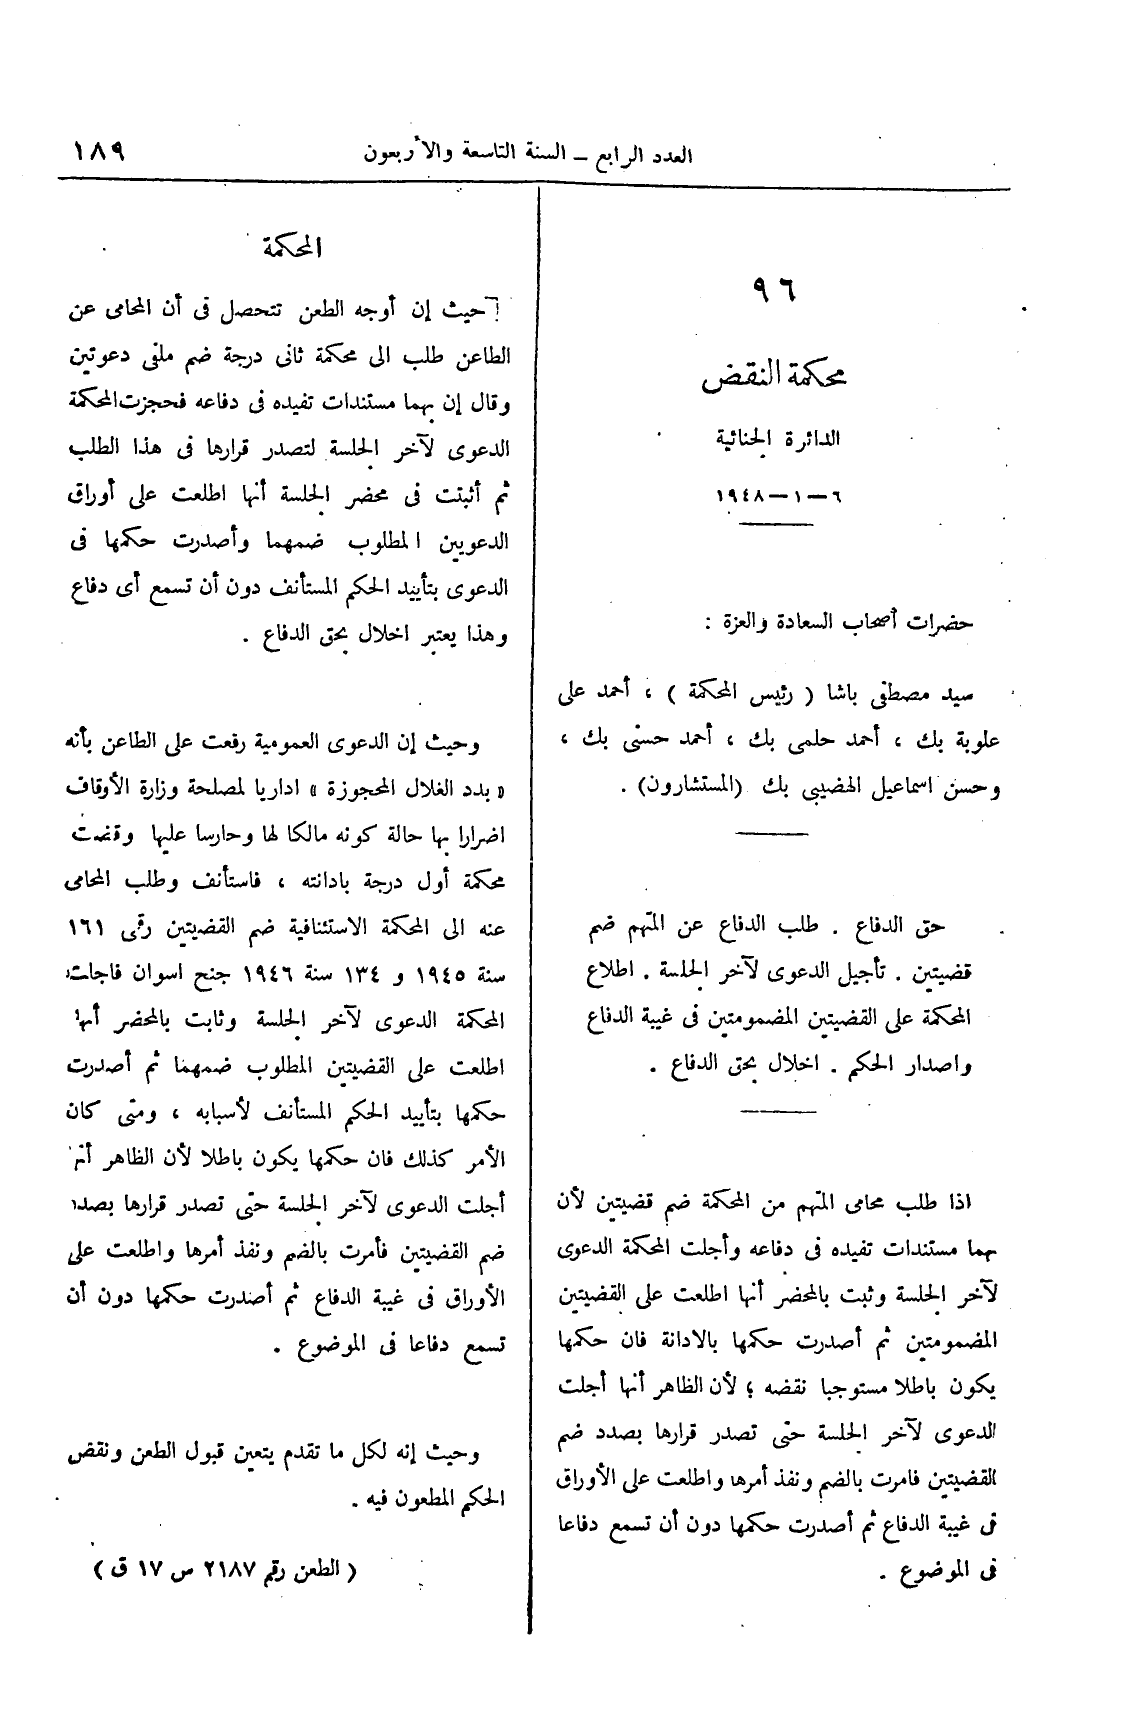 العدد الرابع – السنة التاسعة والأربعون
١٨٩
٩٦
محكمة النقض
الدائرة الجنائية
٦ – ١ – ١٩٤٨
حضرات أصحاب السعادة والعزة :
سيد مصطفى باشا ( رئيس المحكمة ) ، أحمد على
علوبة بك ، أحمد حلمى بك ، أحمد حسنى بك ،
وحسن اسماعيل الهضيبى بك (المستشارون) .
حق الدفاع . طلب الدفاع عن المتهم ضم
قضيتين . تأجيل الدعوى لآخر الجلسة . اطلاع
المحكمة على القضيتين المضمومتين فى غيبة الدفاع
واصدار الحكم . اخلال بحق الدفاع .
اذا طلب محامى المتهم من المحكمة ضم قضيتين لأن
بهما مستندات تفيده فى دفاعه وأجلت المحكمة الدعوى
لآخر الجلسة وثبت بالمحضر أنها اطلعت على القضيتين
المضمومتين ثم أصدرت حكمها بالادانة فان حكمها
يكون باطلا مستوجبا نقضه ؛ لأن الظاهر أنها أجلت
الدعوى لآخر الجلسة حتى تصدر قرارها بصدد ضم
القضيتين فامرت بالضم ونفذ أمرها واطلعت على الأوراق
فى غيبة الدفاع ثم أصدرت حكمها دون أن تسمع دفاعا
فى الموضوع .
المحكمة
حيث إن أوجه الطعن تتحصل فى أن المحامى عن
الطاعن طلب الى محكمة ثانى درجة ضم ملفى دعوتين
وقال إن بهما مستندات تفيده فى دفاعه فحجزت المحكمة
الدعوى لآخر الجلسة لتصدر قرارها فى هذا الطلب
ثم أثبتت فى محضر الجلسة أنها اطلعت على أوراق
الدعويين المطلوب ضمهما وأصدرت حكمها فى
الدعوى بتأييد الحكم المستأنف دون أن تسمع أى دفاع
وهذا يعتبر اخلال بحق الدفاع .
وحيث إن الدعوى العمومية رفعت على الطاعن بأنه
« بدد الغلال المحجوزة » اداريا لمصلحة وزارة الأوقاف
اضرارا بها حالة كونه مالكا لها وحارسا عليها وقضت
محكمة أول درجة بادانته ، فاستأنف وطلب المحامى
عنه الى المحكمة الاستئنافية ضم القضيتين رقمى ١٦١
سنة ١٩٤٥ و ١٣٤ سنة ١٩٤٦ جنح اسوان فاجلت
المحكمة الدعوى لآخر الجلسة وثابت بالمحضر أنها
اطلعت على القضيتين المطلوب ضمهما ثم أصدرت
حكمها بتأييد الحكم المستأنف لأسبابه ، ومتى كان
الأمر كذلك فان حكمها يكون باطلا لأن الظاهر أنها
أجلت الدعوى لآخر الجلسة حتى تصدر قرارها بصدد
ضم القضيتين فأمرت بالضم ونفذ أمرها واطلعت على
الأوراق فى غيبة الدفاع ثم أصدرت حكمها دون أن
تسمع دفاعا فى الموضوع .
وحيث إنه لكل ما تقدم يتعين قبول الطعن ونقض
الحكم المطعون فيه .
( الطعن رقم ٢١٨٧ س ١٧ ق )